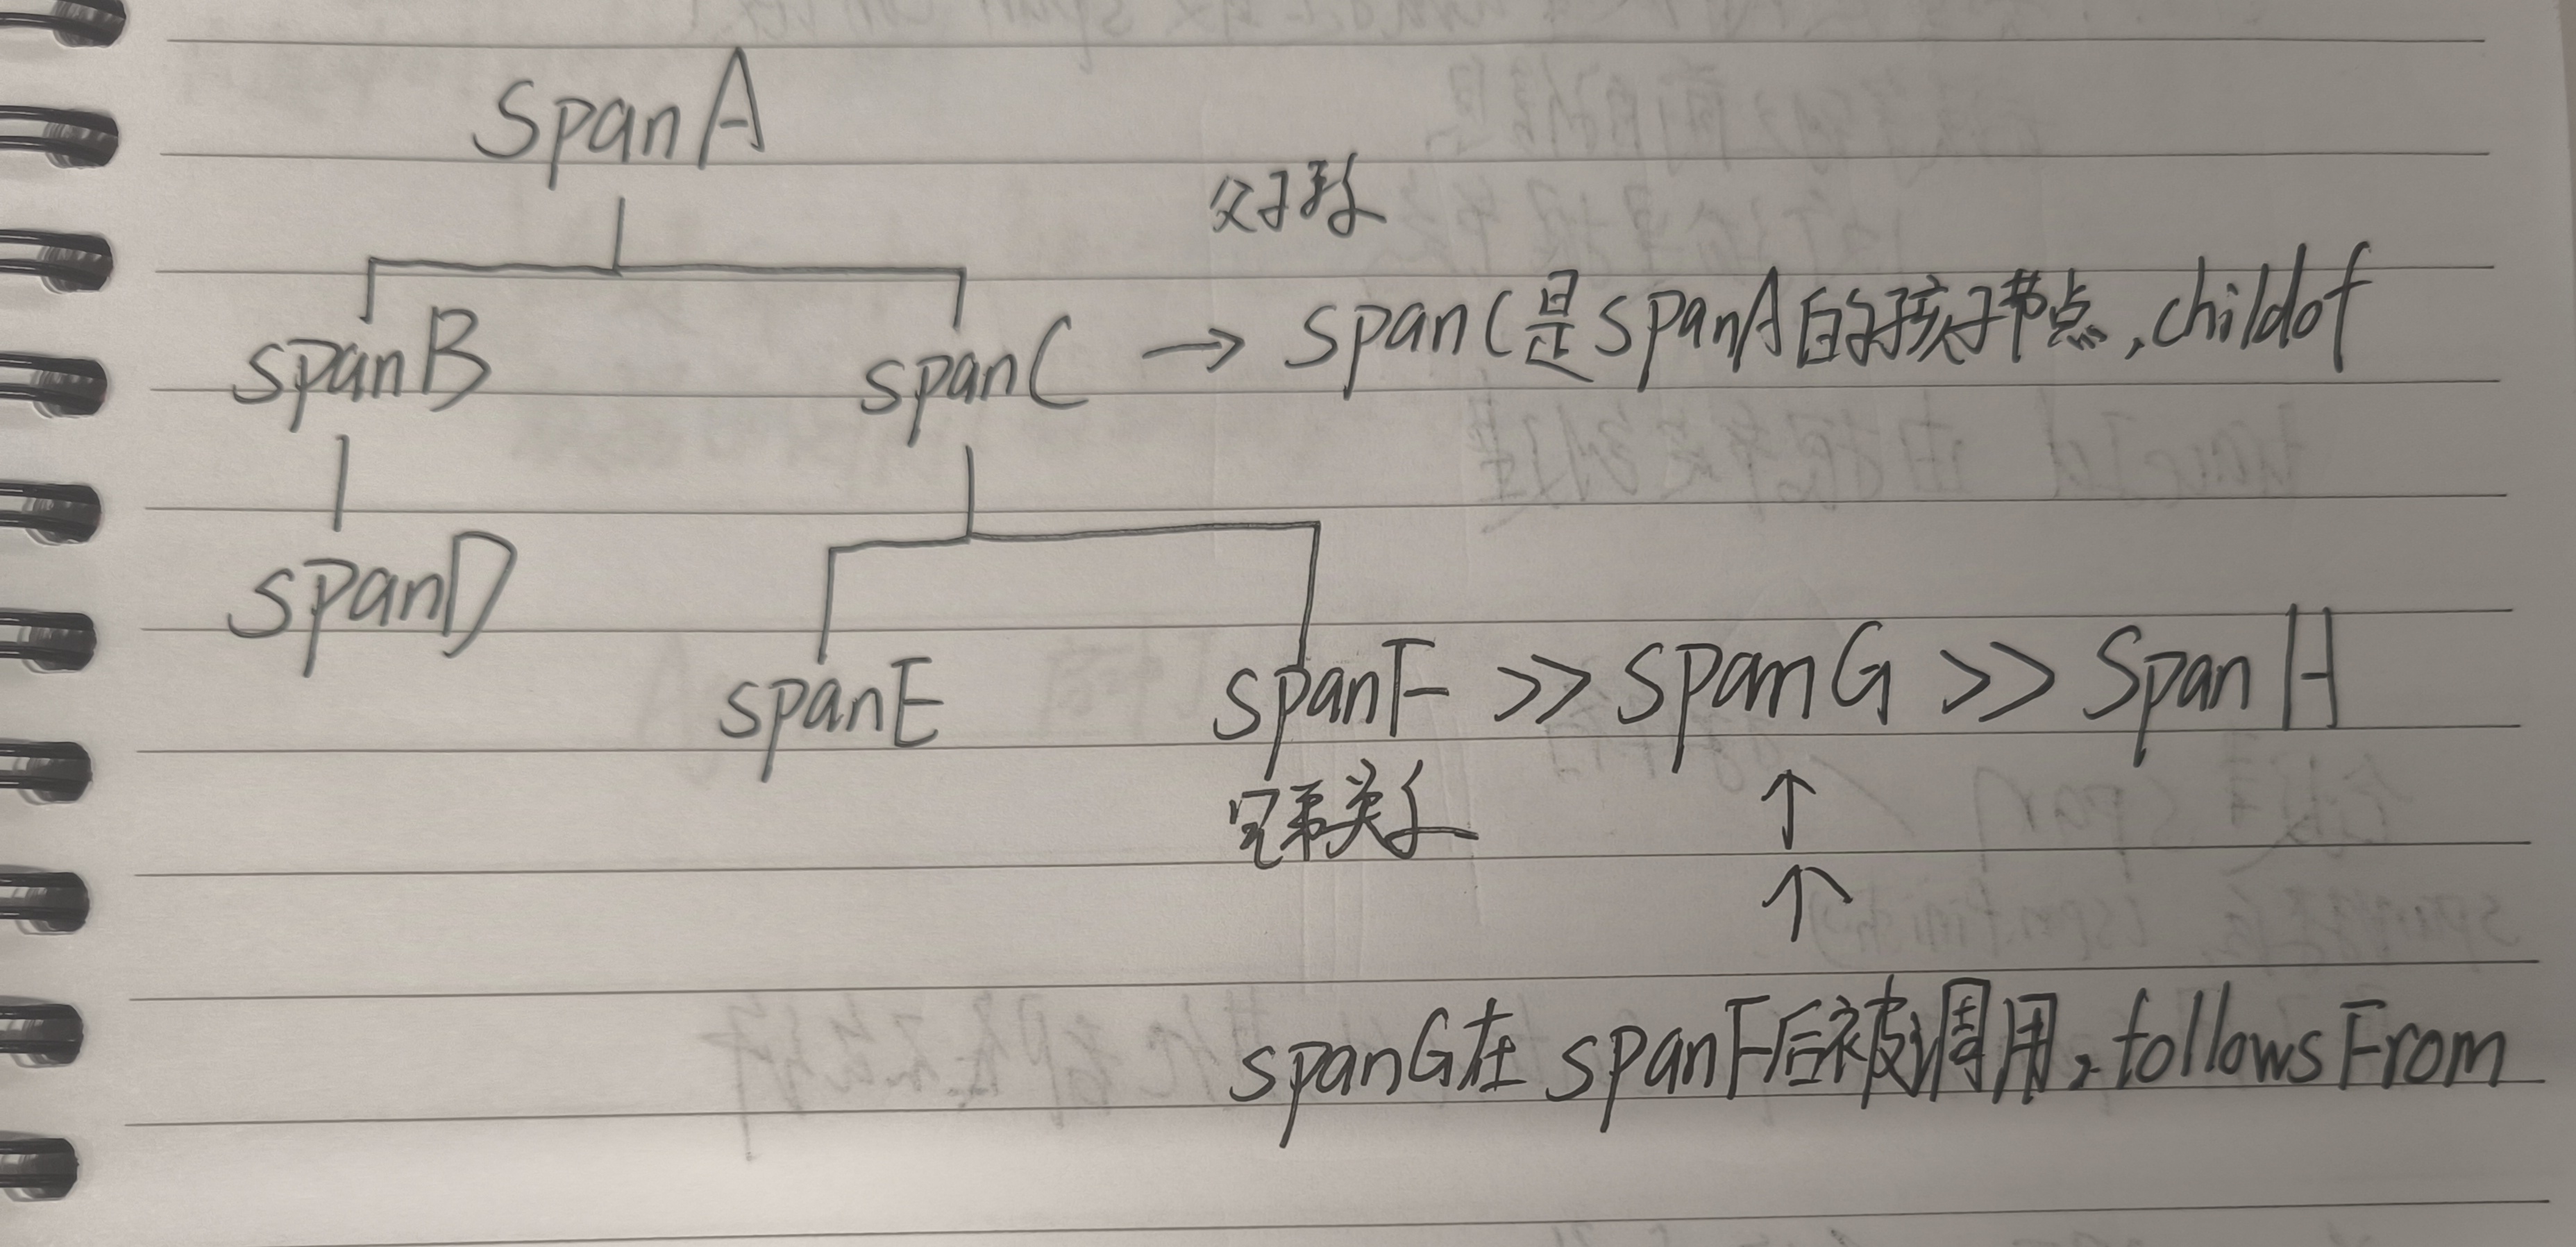 spanA
父子关系
spanB
spanC → spanC是spanA的孩子节点,childof
spanD
spanE
spanF >> spanG >> SpanH
兄弟关系
↑
↑
spanG在spanF后被调用,followsFrom